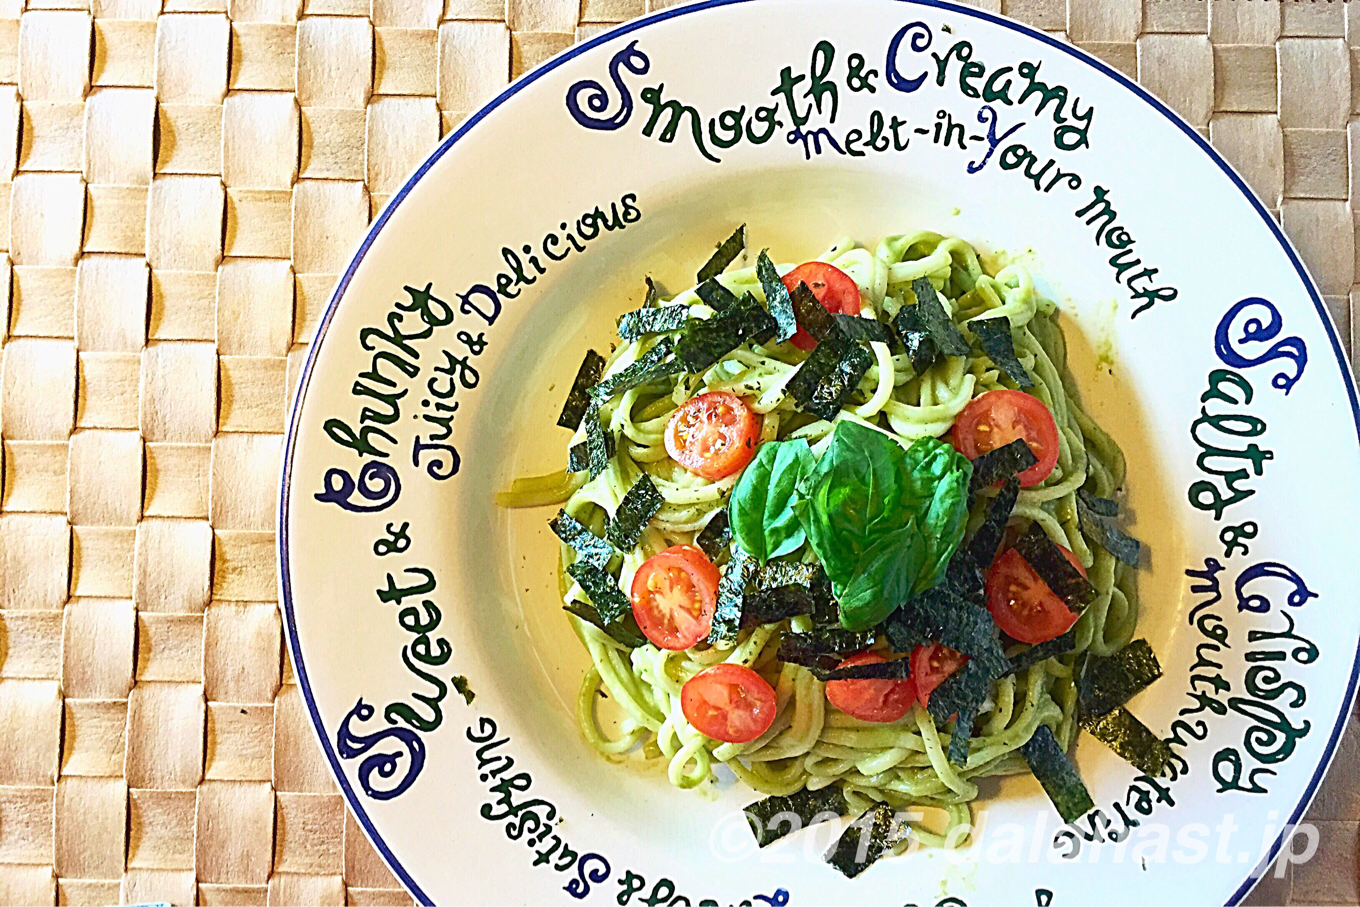 Smooth & Creamy
melt-in-Your mouth
Salty & Crispy
mouthwatering
Sweet & Chunky
Juicy & Delicious
& Satisfying
©2015 dalahast.jp